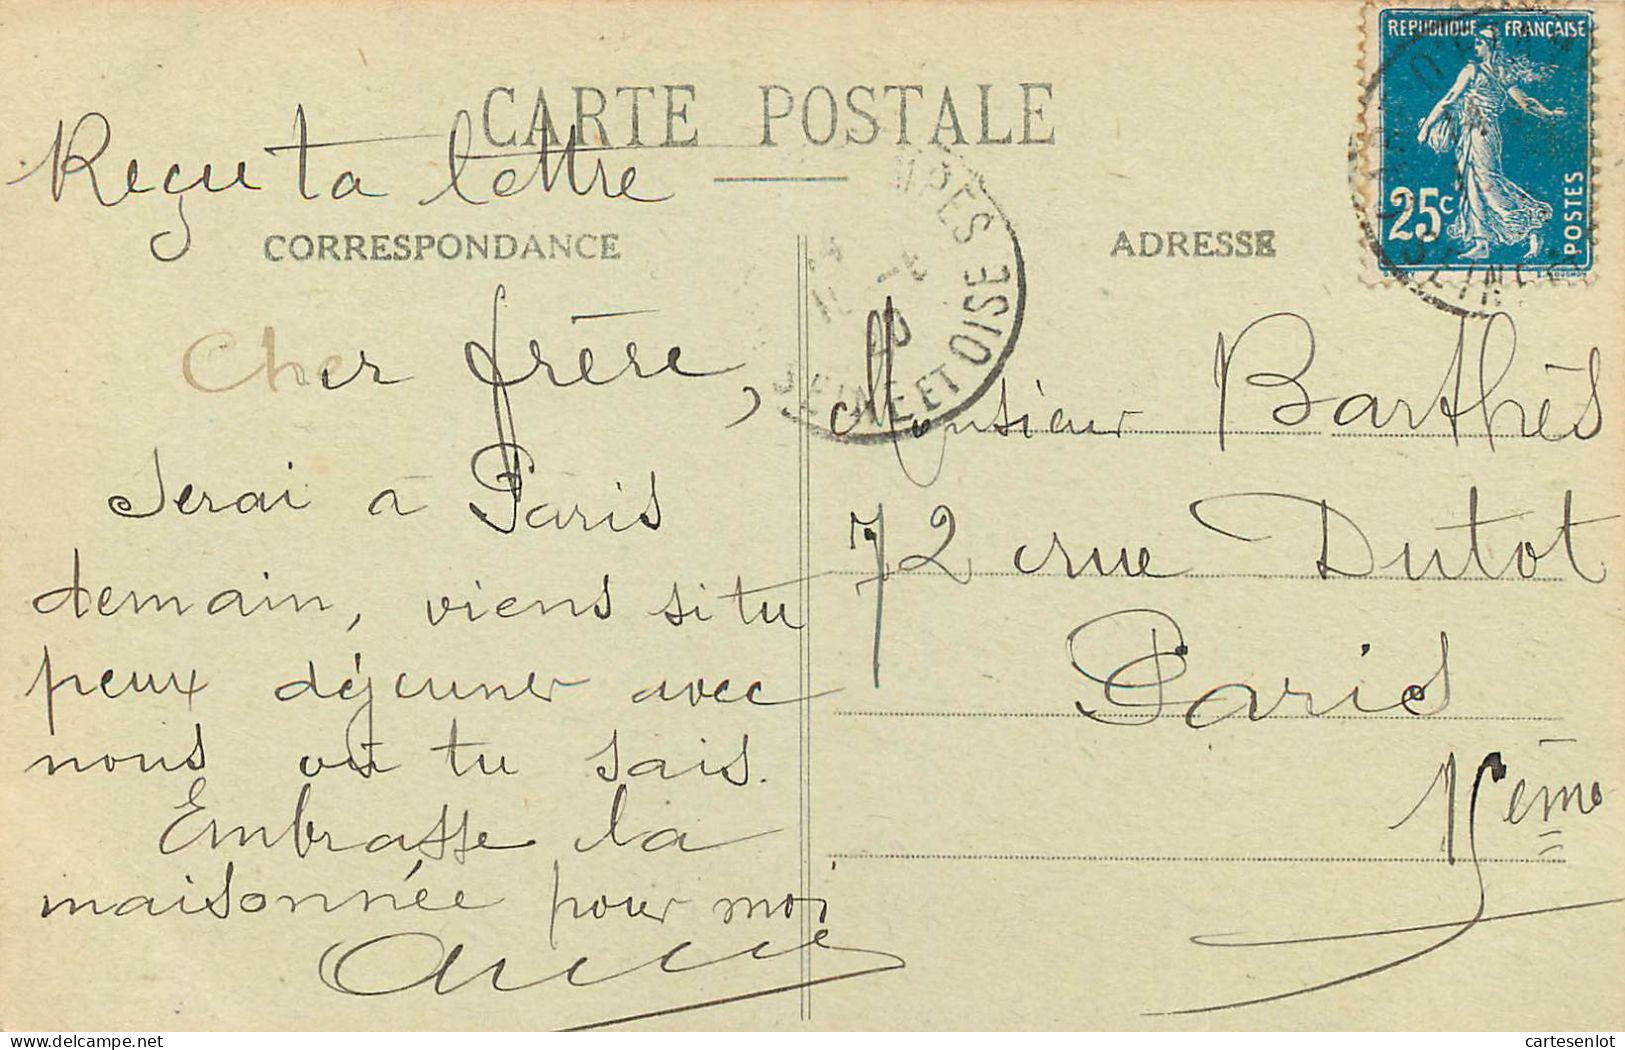 CARTE POSTALE
Reçu ta lettre
CORRESPONDANCE
Cher frère,
Serai à Paris
demain, viens si tu
peux déjeuner avec
nous où tu sais.
Embrasse la
maisonnée pour moi
ADRESSE
Monsieur Barthès
72 rue Dutot
Paris
15ème
REPUBLIQUE FRANÇAISE
25c
POSTES
MPES
SEINE ET OISE
www.delcampe.net
cartesenlot